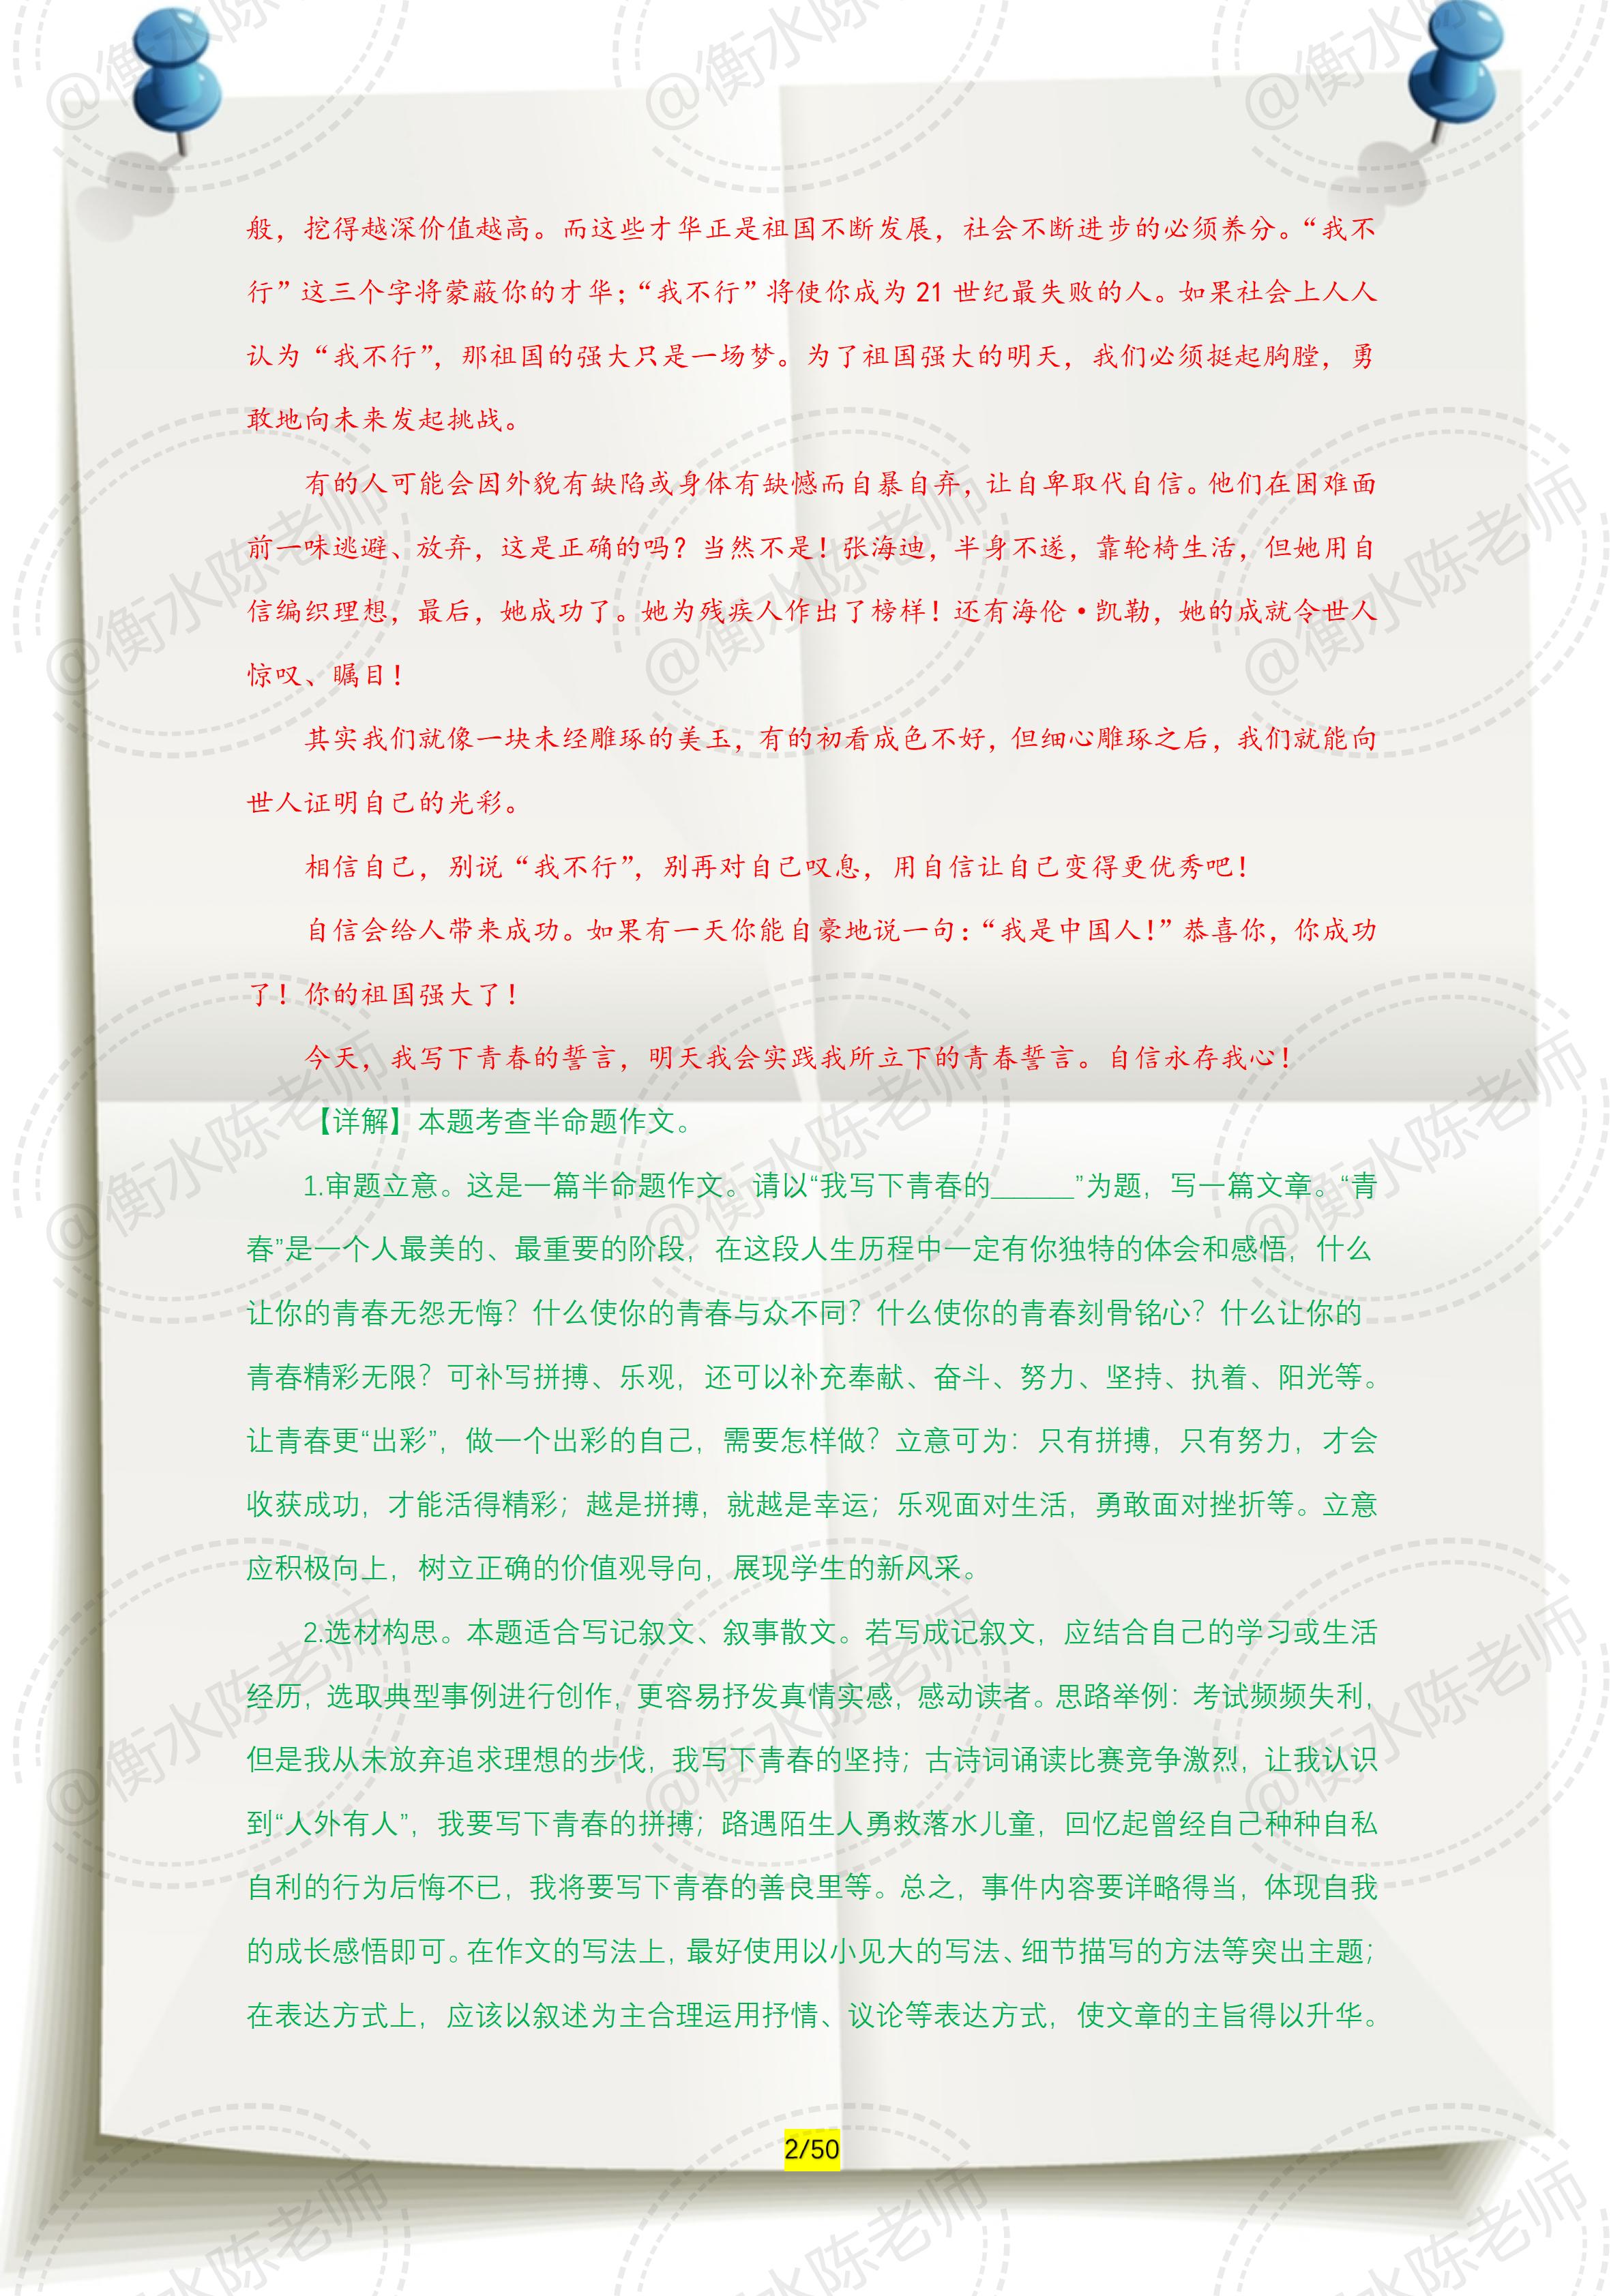 般，挖得越深价值越高。而这些才华正是祖国不断发展，社会不断进步的必须养分。“我不
行”这三个字将蒙蔽你的才华；“我不行”将使你成为 21 世纪最失败的人。如果社会上人人
认为“我不行”，那祖国的强大只是一场梦。为了祖国强大的明天，我们必须挺起胸膛，勇
敢地向未来发起挑战。
有的人可能会因外貌有缺陷或身体有缺憾而自暴自弃，让自卑取代自信。他们在困难面
前一味逃避、放弃，这是正确的吗？当然不是！张海迪，半身不遂，靠轮椅生活，但她用自
信编织理想，最后，她成功了。她为残疾人作出了榜样！还有海伦·凯勒，她的成就令世人
惊叹、瞩目！
其实我们就像一块未经雕琢的美玉，有的初看成色不好，但细心雕琢之后，我们就能向
世人证明自己的光彩。
相信自己，别说“我不行”，别再对自己叹息，用自信让自己变得更优秀吧！
自信会给人带来成功。如果有一天你能自豪地说一句：“我是中国人！”恭喜你，你成功
了！你的祖国强大了！
今天，我写下青春的誓言，明天我会实践我所立下的青春誓言。自信永存我心！
【详解】本题考查半命题作文。
1.审题立意。这是一篇半命题作文。请以“我写下青春的______”为题，写一篇文章。“青
春”是一个人最美的、最重要的阶段，在这段人生历程中一定有你独特的体会和感悟，什么
让你的青春无怨无悔？什么使你的青春与众不同？什么使你的青春刻骨铭心？什么让你的
青春精彩无限？可补写拼搏、乐观，还可以补充奉献、奋斗、努力、坚持、执着、阳光等。
让青春更“出彩”，做一个出彩的自己，需要怎样做？立意可为：只有拼搏，只有努力，才会
收获成功，才能活得精彩；越是拼搏，就越是幸运；乐观面对生活，勇敢面对挫折等。立意
应积极向上，树立正确的价值观导向，展现学生的新风采。
2.选材构思。本题适合写记叙文、叙事散文。若写成记叙文，应结合自己的学习或生活
经历，选取典型事例进行创作，更容易抒发真情实感，感动读者。思路举例：考试频频失利，
但是我从未放弃追求理想的步伐，我写下青春的坚持；古诗词诵读比赛竞争激烈，让我认识
到“人外有人”，我要写下青春的拼搏；路遇陌生人勇救落水儿童，回忆起曾经自己种种自私
自利的行为后悔不已，我将要写下青春的善良里等。总之，事件内容要详略得当，体现自我
的成长感悟即可。在作文的写法上，最好使用以小见大的写法、细节描写的方法等突出主题；
在表达方式上，应该以叙述为主合理运用抒情、议论等表达方式，使文章的主旨得以升华。
2/50
@衡水陈老师
@衡水陈老师
@衡水陈老师
@衡水陈老师
@衡水陈老师
@衡水陈老师
@衡水陈老师
@衡水陈老师
@衡水陈老师